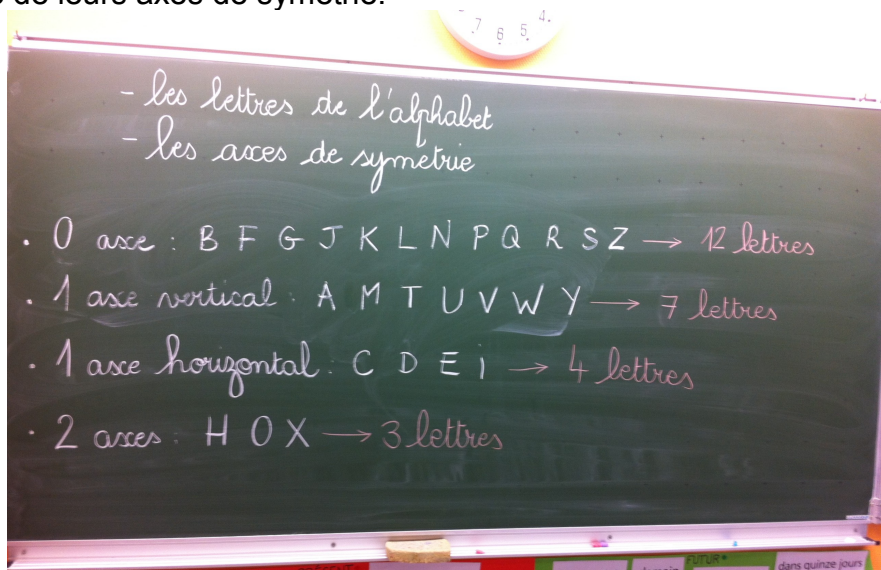 de leurs axes de symétrie.
7 6 5 4
- les lettres de l'alphabet
- les axes de symétrie
. 0 axe : B F G J K L N P Q R S Z → 12 lettres
. 1 axe vertical : A M T U V W Y → 7 lettres
. 1 axe horizontal : C D E i → 4 lettres
. 2 axes : H O X → 3 lettres
FUTUR
dans quinze jours